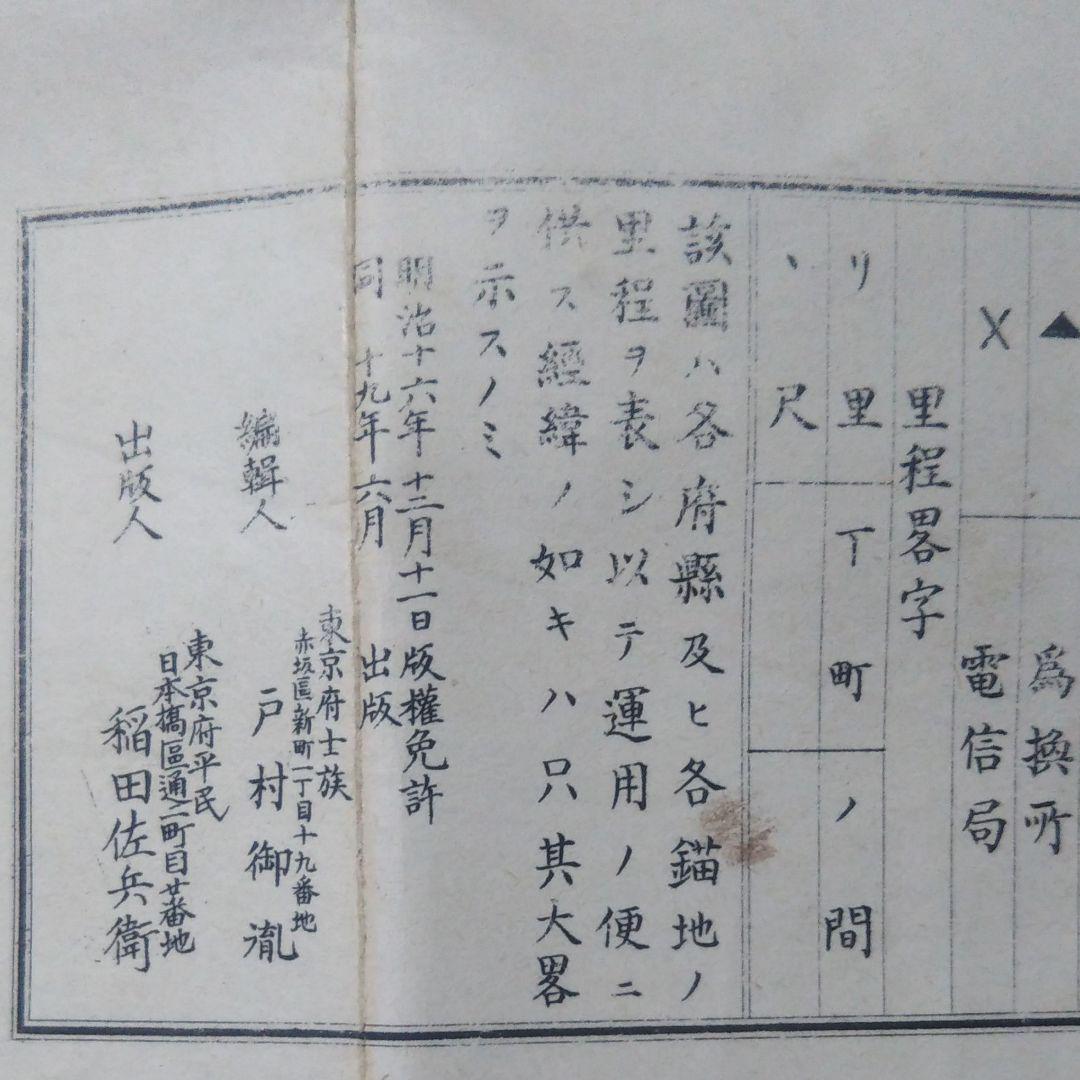 ▲ 為換所
X 電信局
里程畧字
リ 里 丁 町 ノ 間
丶 尺
該圖ハ各府縣及ヒ各錨地ノ
里程ヲ表シ以テ運用ノ便ニ
供ス經緯ノ如キハ只其大畧
ヲ示スノミ
明治十六年十二月十一日版權免許
同 十九年六月 出版
東京府士族
赤坂區新町一丁目十九番地
編輯人 戸村御胤
東京府平民
日本橋區通二町目廿番地
出版人 稲田佐兵衛